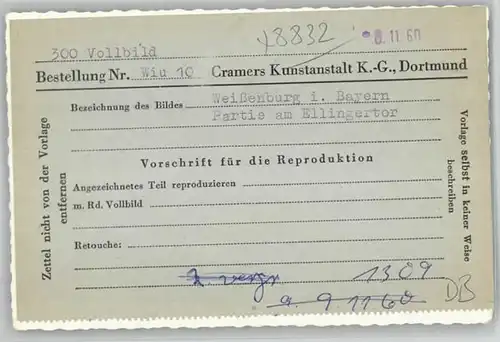 300 Vollbild
x8832
8.11.60
Bestellung Nr. Wiu 10 Cramers Kunstanstalt K.-G., Dortmund
Bezeichnung des Bildes Weißenburg i. Bayern
Partie am Ellingertor
Vorschrift für die Reproduktion
Angezeichnetes Teil reproduzieren
m. Rd. Vollbild
Retouche:
Zettel nicht von der Vorlage
entfernen
Vorlage selbst in keiner Weise
beschreiben
z. vergr
1309
9 11 60
DB